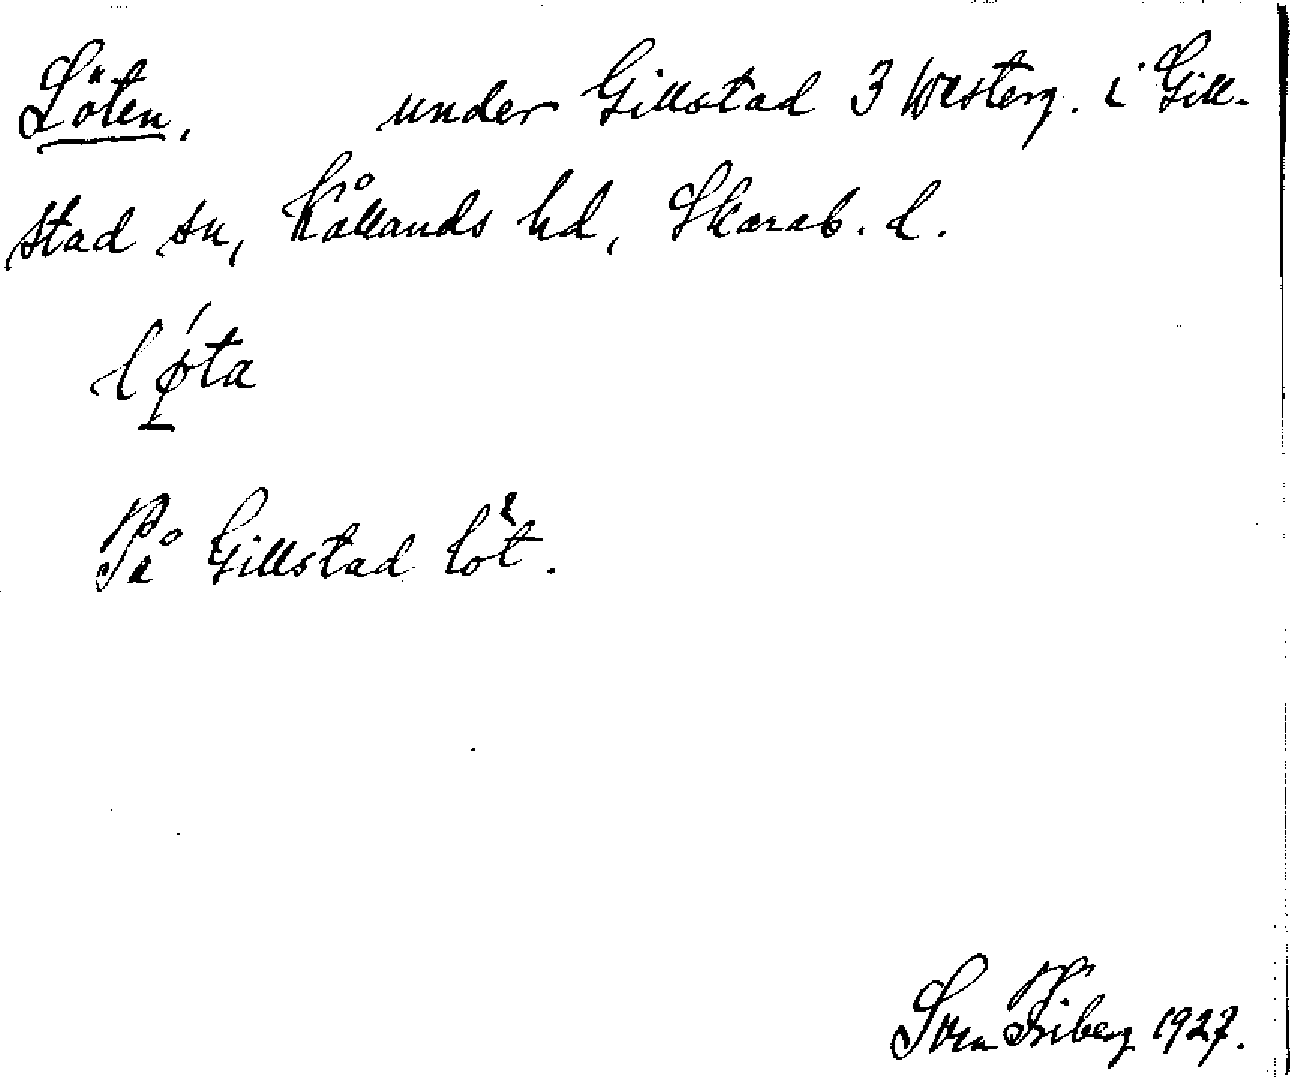 Löten, under Gillstad 3 Westerg. i Gill-
stad sn, Kållands hd, Skarab. l.
lǿta
På Gillstad löt.
Sven Friberg 1927.